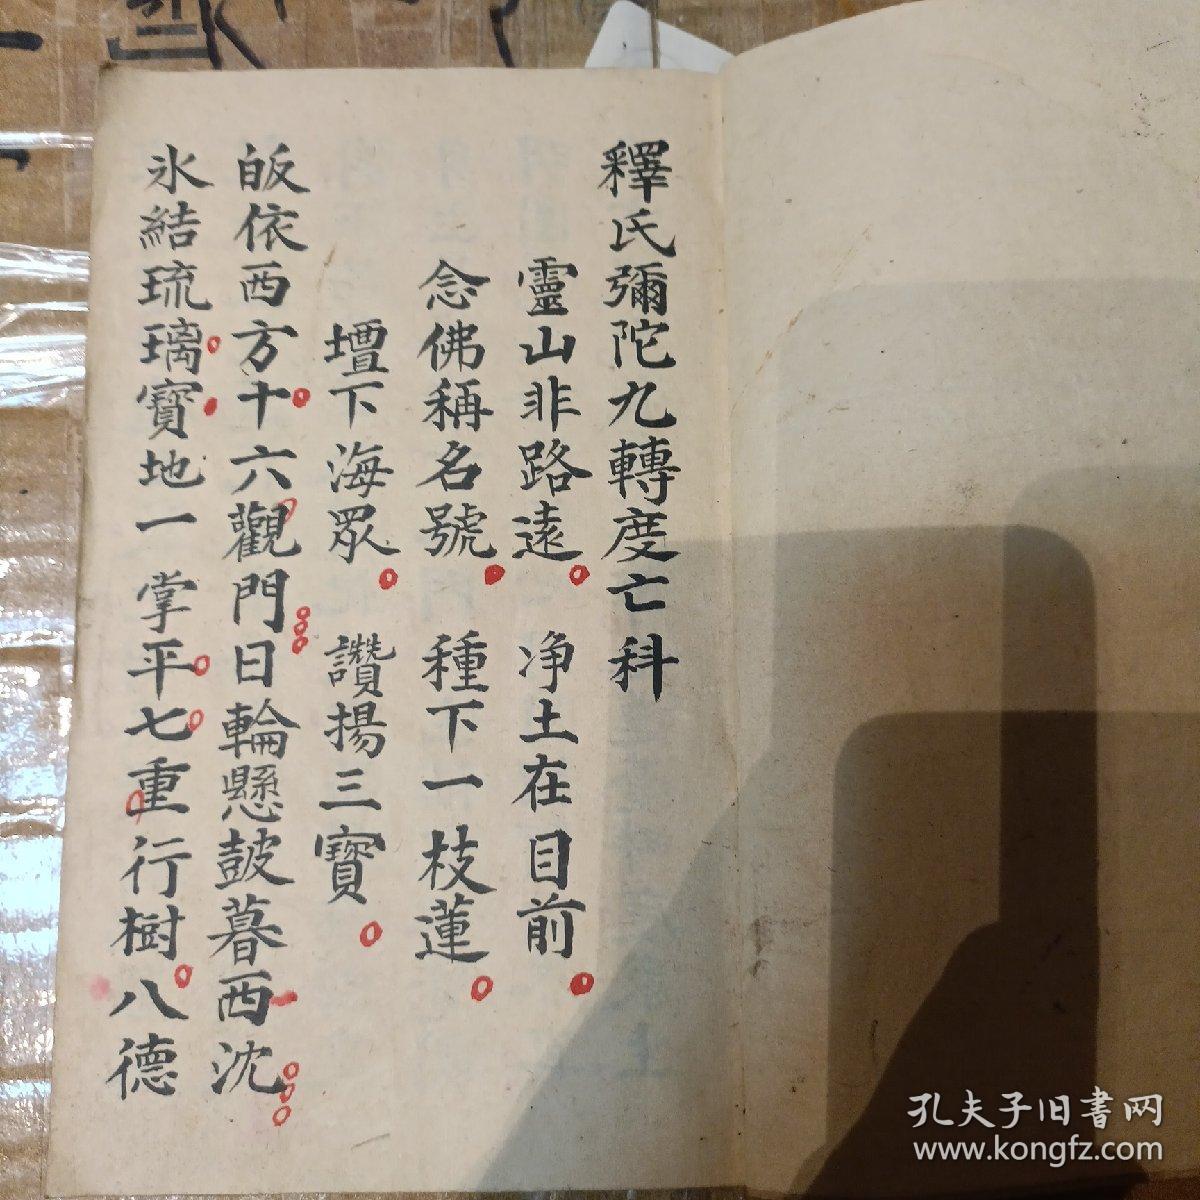 釋氏彌陀九轉度亡科
靈山非路遠 净土在目前
念佛稱名號 種下一枝蓮
壇下海眾 讚揚三寶
皈依西方十六觀門日輪懸皷暮西沈
氷結琉璃寶地一掌平七重行樹八德
孔夫子旧書网
www.kongfz.com